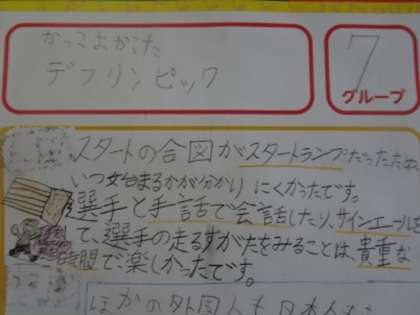 かっこよかった
デフリンピック
7
グループ
スタートの合図がスタートランプだったため、
いつ始まるかが分かりにくかったです。
選手と手話で会話したり、サインエールを
して、選手の走るすがたをみることは、貴重な
時間で楽しかったです。
ほかの外国人も日本人も